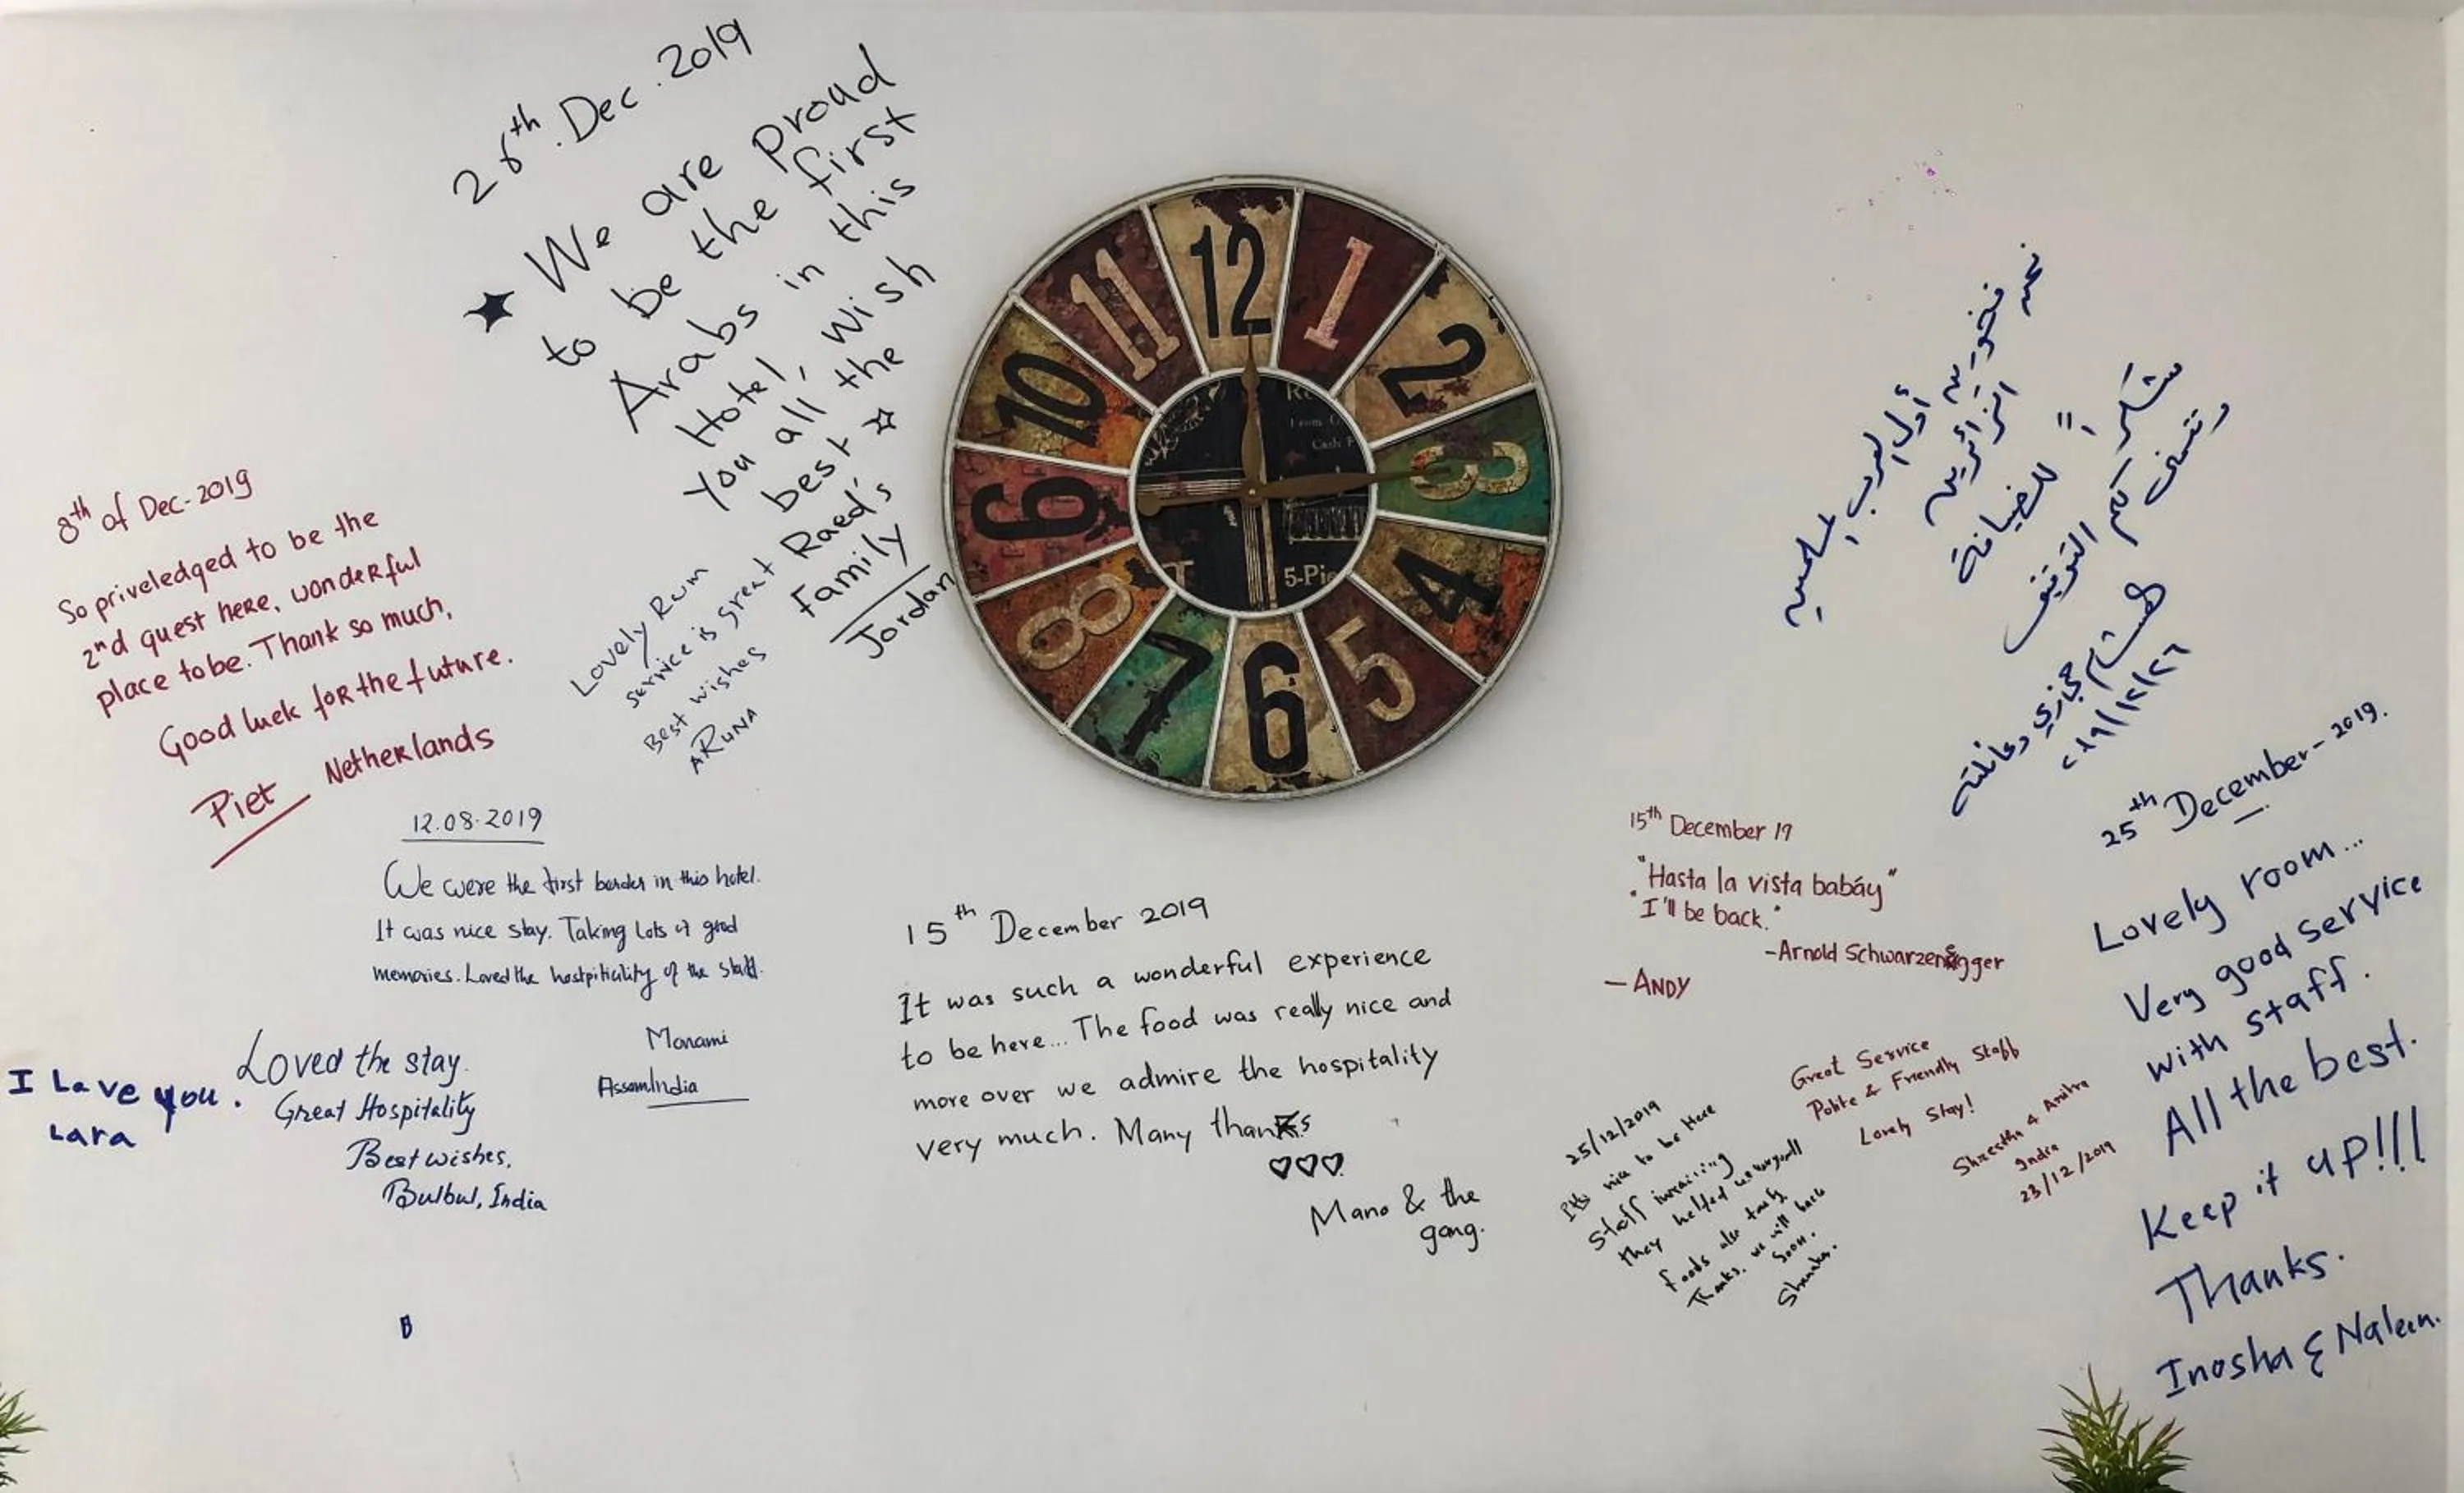 26th. Dec. 2019
We are proud
to be the first
Arabs in this
Hotel, wish
you all the
best
Raed's
Family
Jordan
8th of Dec-2019
So priveledged to be the
2nd guest here, wonderful
place to be. Thank so much,
Good luck for the future.
Piet Netherlands
Lovely Rum
service is great
Best wishes
ARUNA
12.08.2019
We were the first border in this hotel.
It was nice stay. Taking lots of good
memories. Loved the hostpitiality of the staff.
Manami
Assam India
I Lave you.
Lara
Loved the stay.
Great Hospitality
Best wishes,
Bulbul, India
B
12
1
2
3
4
5
6
7
8
9
10
11
5-Pie
15th December 2019
It was such a wonderful experience
to be here... The food was really nice and
more over we admire the hospitality
very much. Many thanks
Mano & the
gang.
نحن فخورين
أول العرب
الزائرين
شكراً للضيافة
ونتمنى لكم التوفيق
حجازي وعائلته
٢٠١٩/١٢/٢٦
15th December 19
"Hasta la vista babáy"
"I'll be back."
-Arnold Schwarzenegger
- ANDY
Great Service
Polite & Friendly Staff
Lovely Stay!
Shrestha & Anitra
India
23/12/2019
25/12/2019
nice to be Here
Staff
they helted us
foods also tasty
Thanks. we will back
Soon.
25th December - 2019.
Lovely room...
Very good service
with staff.
All the best.
Keep it up!!!
Thanks.
Inosha & Naleen.